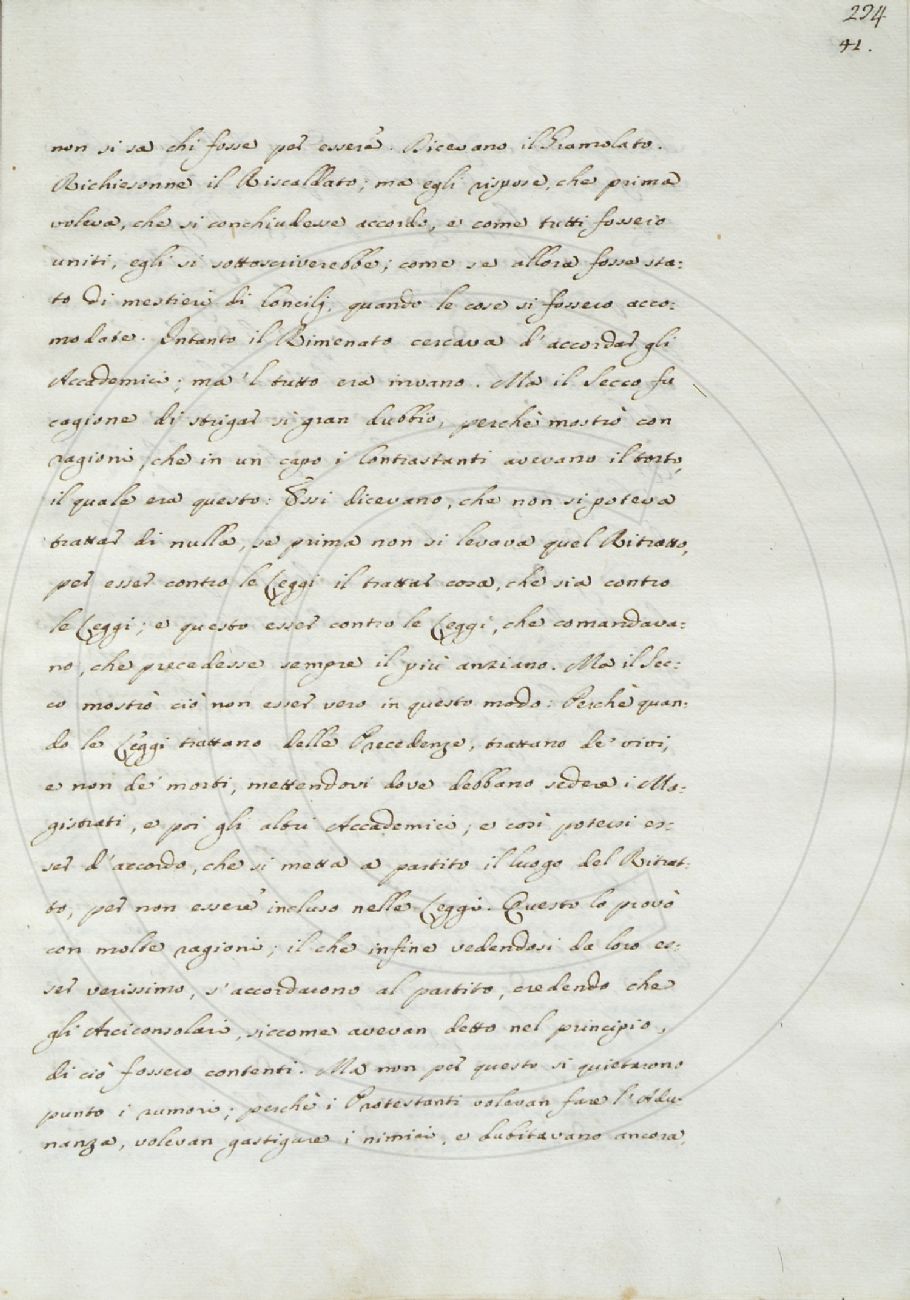 294
41.
non si sa chi fosse per essere. Dicevano il Gramolato.
Richiesonne il Riscaldato; ma egli rispose, che prima
voleva, che si conchiudesse accordo, e come tutti fossero
uniti, egli si sottoscriverebbe; come se allora fosse sta:
to di mestieri di Concilj, quando le cose si fossero acco:
modate. Intanto il Rimenato cercava d'accordar gli
Accademici; ma 'l tutto era invano. Ma il Secco fu
cagione di strigar si gran dubbio, perchè mostrò con
ragioni, che in un capo i Contrastanti avevano il torto,
il quale era questo: Essi dicevano, che non si poteva
trattar di nulla, se prima non si levava quel Ritratto,
per esser contro le Leggi il trattar cosa, che sia contro
le Leggi; e questo esser contro le Leggi, che comandava:
no, che precedesse sempre il più anziano. Ma il Sec:
co mostrò ciò non esser vero in questo modo: Perchè quan:
do le Leggi trattano delle Precedenze, trattano de' vivi,
e non de' morti, mettendovi dove debbano sedere i Ma:
gistrati, e poi gli altri Accademici; e così potersi es:
ser d'accordo, che si metta a partito il luogo del Ritrat:
to, per non essere incluso nelle Leggi. Questo lo provò
con molte ragioni; il che infine vedendosi da loro es:
ser verissimo, s'accordarono al partito, credendo che
gli Arciconsolari, siccome avevan detto nel principio,
di ciò fossero contenti. Ma non per questo si quietarono
punto i rumori; perchè i Protestanti volevan fare l'Adu:
nanza, volevan gastigare i nimici, e dubitavano ancora,